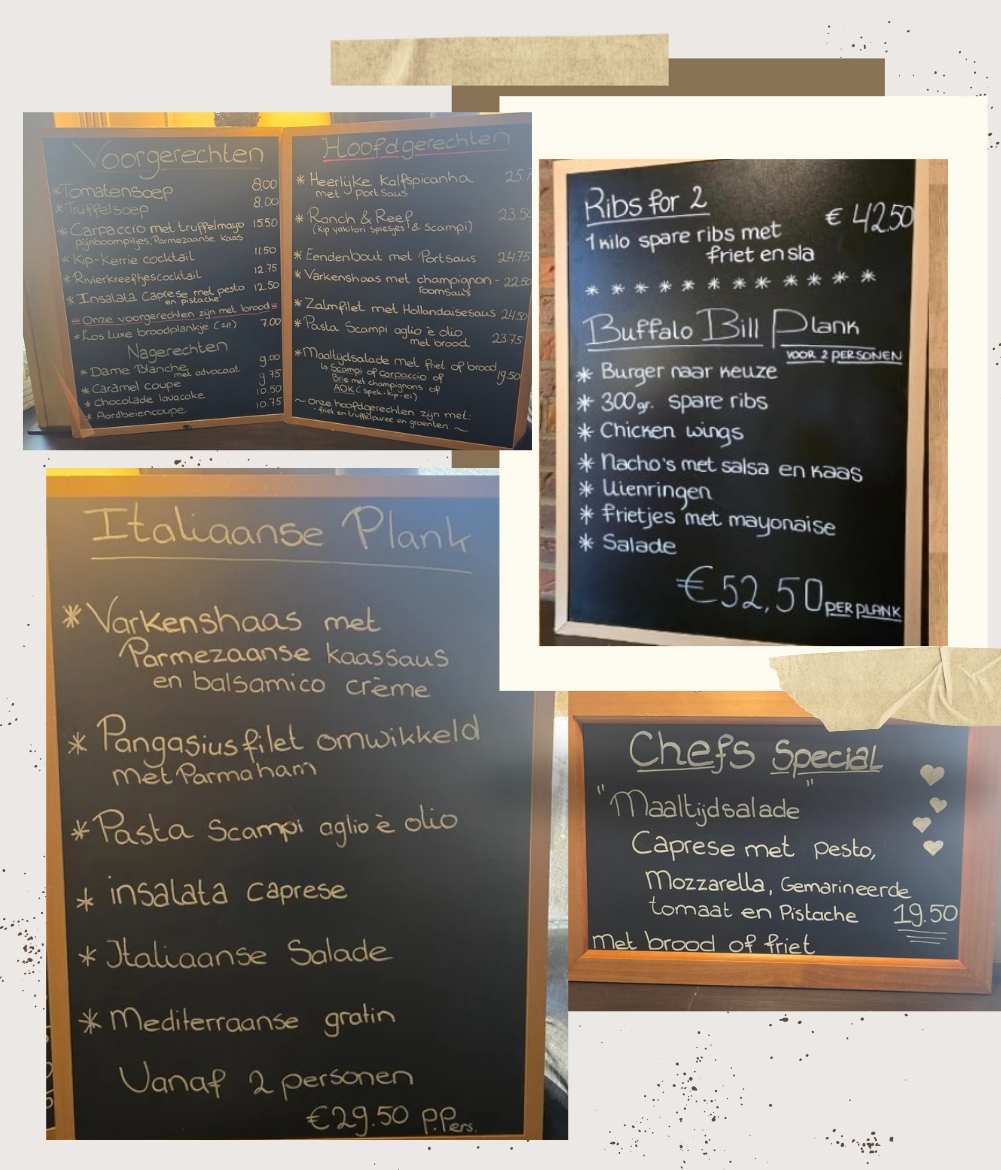 Voorgerechten
* Tomatensoep 8,00
* Truffelsoep 8.00
* Carpaccio met truffelmayo 15.50
pijnboompitjes, Parmezaanse kaas
* Kip-Kerrie cocktail 11.50
* Rivierkreeftjescocktail 12.75
* Insalata Caprese met pesto 12.50
en pistache
= Onze voorgerechten zijn met brood =
* Los luxe broodplankje (2p) 7.00
Nagerechten
* Dame Blanche 9.00
met advocaat
* Caramel coupe 9.75
* Chocolade lavacake 10.50
* Aardbeiencoupe 10.75
Hoofdgerechten
* Heerlijke Kalfspicanha 25.7
met Portsaus
* Ranch & Reef 23.50
(kip yakitori spiesjes & scampi)
* Eendenbout met Portsaus 24.75
* Varkenshaas met champignon- 22.50
roomsaus
* Zalmfilet met Hollandaisesaus 24.50
* Pasta Scampi aglio è olio
met brood 23.75
* Maaltijdsalade met friet of brood 19.50
Scampi of carpaccio of
Brie met champignons of
(spek-kip-ei)
~ Onze hoofdgerechten zijn met:
friet en truffelpuree en groenten ~
Ribs for 2
€ 42,50
1 kilo spare ribs met
friet en sla
* * * * * * * * * * *
Buffalo Bill Plank
VOOR 2 PERSONEN
* Burger naar keuze
* 300gr. spare ribs
* Chicken wings
* Nacho's met salsa en kaas
* Uienringen
* Frietjes met mayonaise
* Salade
€52,50 PER PLANK
Italiaanse Plank
* Varkenshaas met
Parmezaanse kaassaus
en balsamico crème
* Pangasiusfilet omwikkeld
met Parmaham
* Pasta Scampi aglio è olio
* insalata caprese
* Italiaanse Salade
* Mediterraanse gratin
Vanaf 2 personen
€29.50 P.Pers.
Chefs Special
"Maaltijdsalade"
Caprese met pesto,
Mozzarella, Gemarineerde
tomaat en Pistache 19.50
met brood of friet